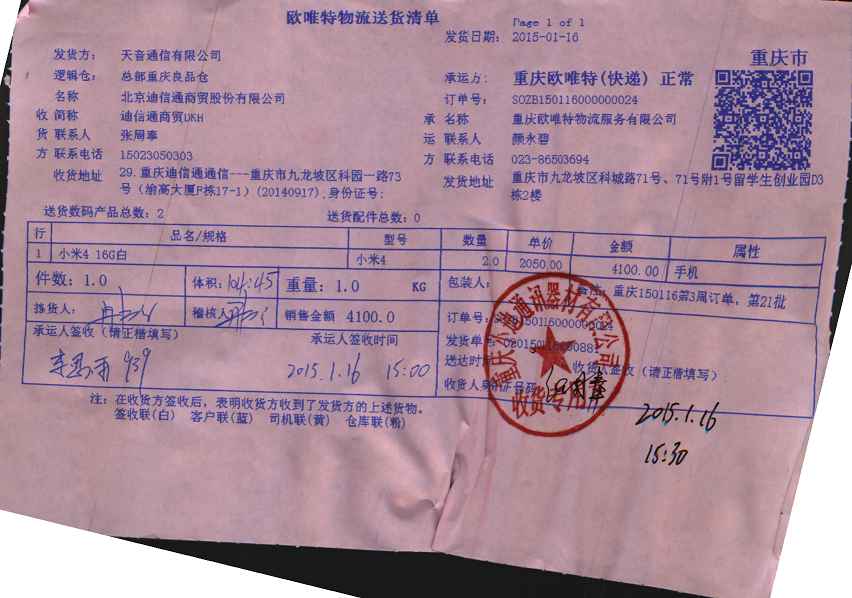 欧唯特物流送货清单
Page 1 of 1
发货日期: 2015-01-16
重庆市
发货方: 天音通信有限公司
逻辑仓: 总部重庆良品仓
承运方: 重庆欧唯特(快递) 正常
名称 北京迪信通商贸股份有限公司
订单号: SOZB150116000000024
收 简称 迪信通商贸DKH
承 名称 重庆欧唯特物流服务有限公司
货 联系人 张周奉
运 联系人 颜永碧
方 联系电话 15023050303
方 联系电话 023-86503694
收货地址 29.重庆迪信通通信---重庆市九龙坡区科园一路73
号(渝高大厦F栋17-1)(20140917),身份证号:
发货地址 重庆市九龙坡区科城路71号、71号附1号留学生创业园D3
栋2楼
送货数码产品总数: 2 送货配件总数: 0
行 品名/规格 型号 数量 单价 金额 属性
1 小米4 16G白 小米4 2.0 2050.00 4100.00 手机
件数: 1.0 体积: 重量: 1.0 KG 包装人: 备注: 重庆150116第3周订单, 第21批
拣货人: 稽核人 销售金额 4100.0 订单号: SOZB150116000000024
承运人签收(请正楷填写) 承运人签收时间
发货单号
送达时间 收货人签收(请正楷填写)
939 2015.1.16 15:00
收货人身份证号码
重庆 通讯器材有限公司
收货专用
2015.1.16
15:30
注: 在收货方签收后, 表明收货方收到了发货方的上述货物。
签收联(白) 客户联(蓝) 司机联(黄) 仓库联(粉)